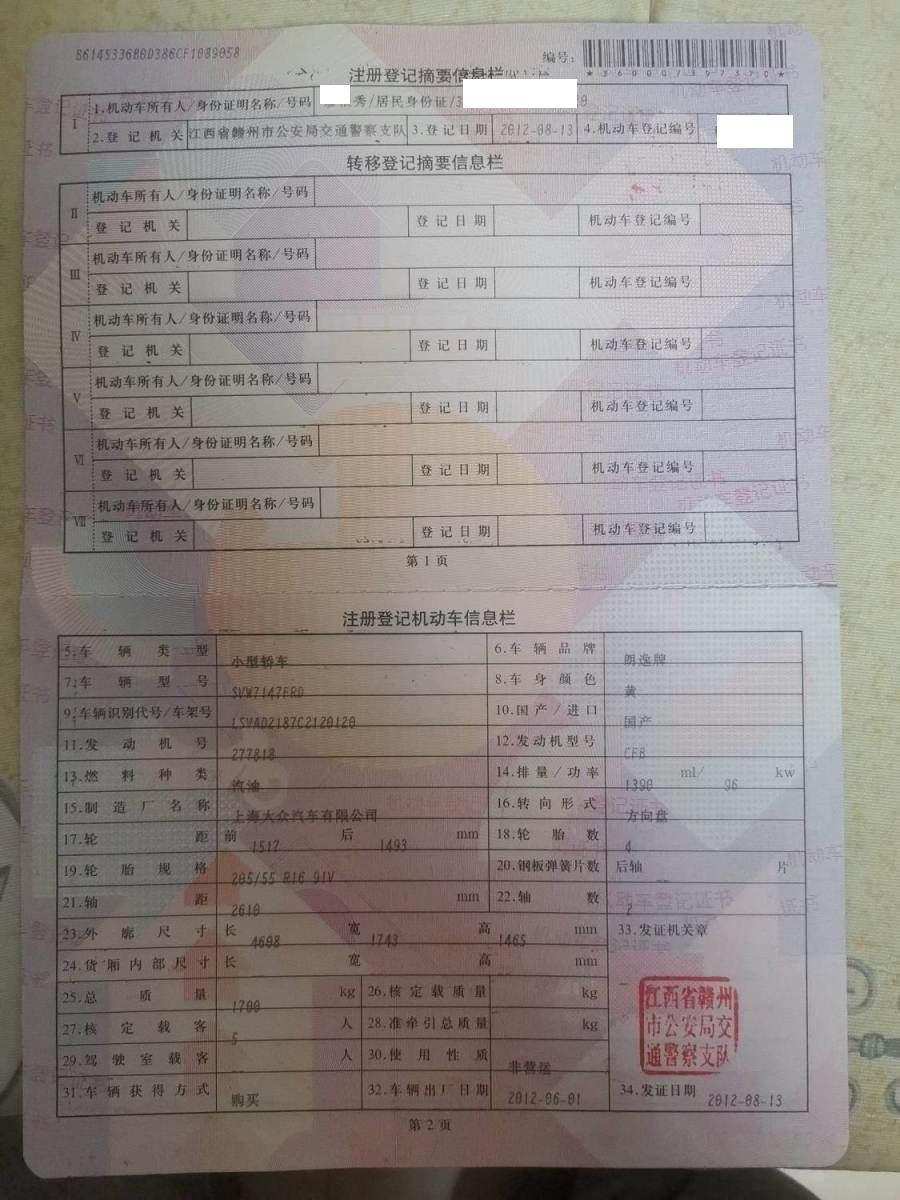 B6145336B0D386CF1089058
编号:
*360007397370*
注册登记摘要信息栏
I 1.机动车所有人/身份证明名称/号码 秀/居民身份证/3
2.登记机关 江西省赣州市公安局交通警察支队 3.登记日期 2012-08-13 4.机动车登记编号
转移登记摘要信息栏
II 机动车所有人/身份证明名称/号码
登记机关 登记日期 机动车登记编号
III 机动车所有人/身份证明名称/号码
登记机关 登记日期 机动车登记编号
IV 机动车所有人/身份证明名称/号码
登记机关 登记日期 机动车登记编号
V 机动车所有人/身份证明名称/号码
登记机关 登记日期 机动车登记编号
VI 机动车所有人/身份证明名称/号码
登记机关 登记日期 机动车登记编号
VII 机动车所有人/身份证明名称/号码
登记机关 登记日期 机动车登记编号
第1页
注册登记机动车信息栏
5.车辆类型 小型轿车 6.车辆品牌 朗逸牌
7.车辆型号 SVW7147FRD 8.车身颜色 黄
9.车辆识别代号/车架号 LSVAD2187C2120120 10.国产/进口 国产
11.发动机号 277818 12.发动机型号 CFB
13.燃料种类 汽油 14.排量/功率 1390 ml/ 96 kw
15.制造厂名称 上海大众汽车有限公司 16.转向形式 方向盘
17.轮距 前 1517 后 1493 mm 18.轮胎数 4
19.轮胎规格 205/55 R16 91V 20.钢板弹簧片数 后轴 片
21.轴距 2610 mm 22.轴数 2
23.外廓尺寸 长 4608 宽 1743 高 1465 mm 33.发证机关章
24.货厢内部尺寸 长 宽 高 mm
25.总质量 1700 kg 26.核定载质量 kg
27.核定载客 5 人 28.准牵引总质量 kg
29.驾驶室载客 人 30.使用性质 非营运
31.车辆获得方式 购买 32.车辆出厂日期 2012-06-01 34.发证日期 2012-08-13
江西省赣州
市公安局交
通警察支队
第2页